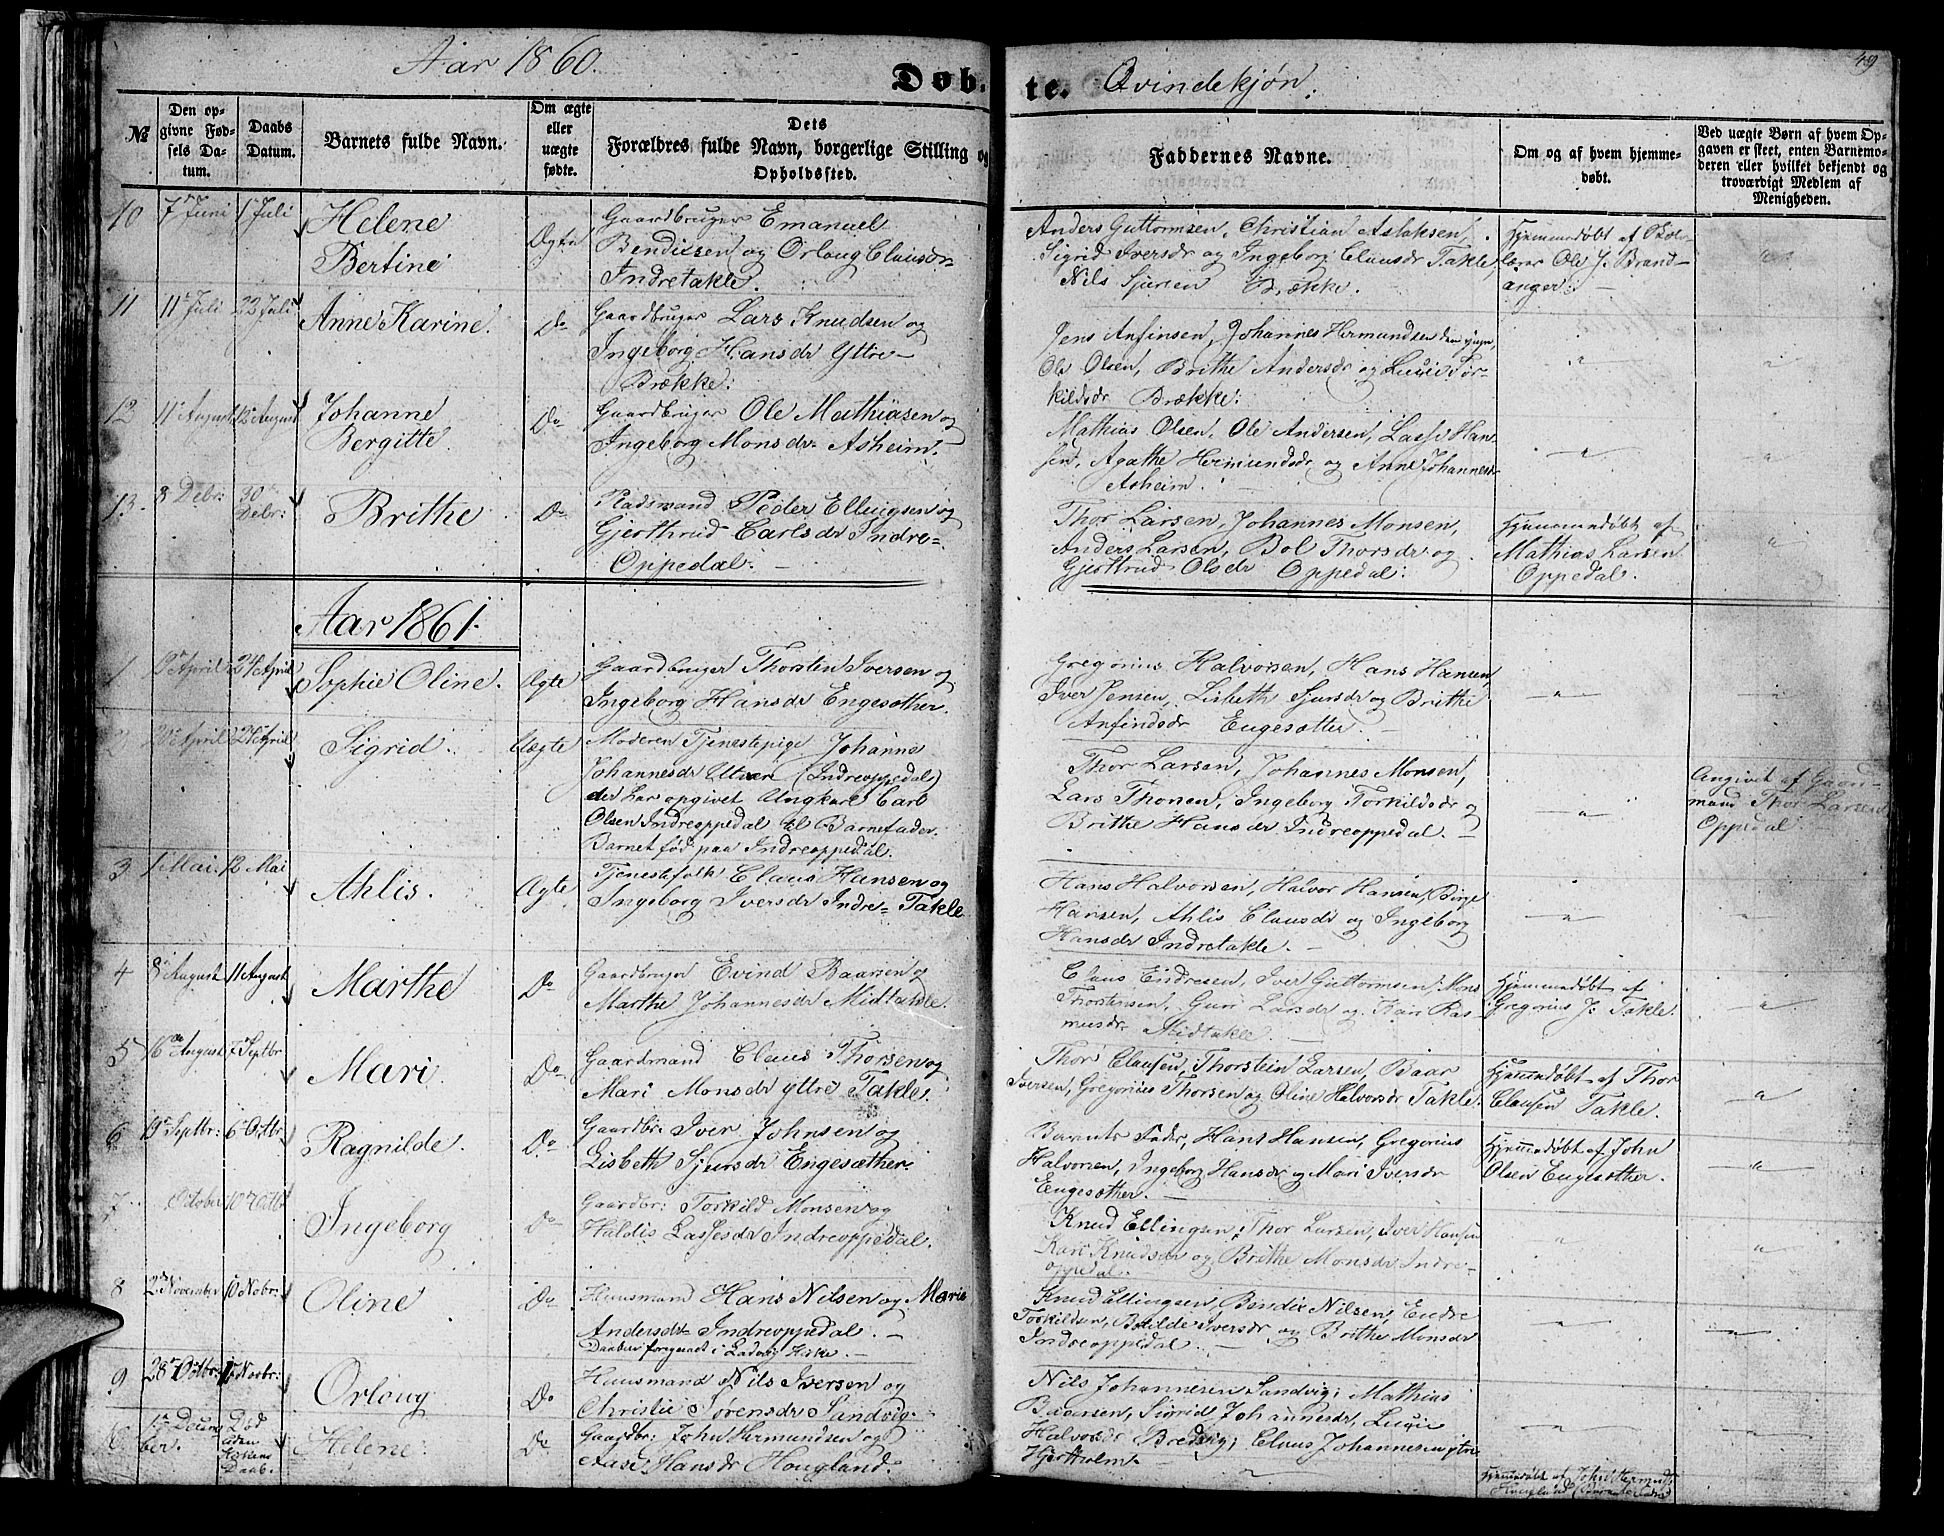 Aar 1860.
Døb-
te.
Qvindekjøn.
49
№
Den op-
givne Fød-
sels Da-
tum.
Daabs
Datum.
Barnets fulde Navn.
Om ægte
eller
uægte
fødte.
Dets
Forældres fulde Navn, borgerlige Stilling og
Opholdssted.
Faddernes Navne.
Om og af hvem hjemme-
døbt.
Ved uægte Børn af hvem Op-
gaven er skeet, enten Barnemo-
deren eller hvilket bekjendt og
troværdigt Medlem af
Menigheden.
10 7 Juni 1 Juli Helene
Bertine
Ægte
Gaardbruger Emanuel
Bendixen og Orloug Clausdr
Indretakle.
Anders Guttormsen, Christian Aslaksen,
Sigrid Iversdr og Ingeborg Clausdr Takle,
Nils Sjursen Brække.
Hjemmedøbt af Skole-
lærer Ole J. Brand-
anger.
11 11 Juli 22 Juli Anne Karine. Do
Gaardbruger Lars Knudsen og
Ingeborg Hansdr Yttre-
Brække.
Jens Anfinsen, Johannes Hermundsen den yngre,
Ole Olsen, Brithe Andersdr og Lucie Tor-
kildsdr Brække.
12 11 August 12 August Johanne
Bergitte
Do
Gaardbruger Ole Mathiasen og
Ingeborg Monsdr Asheim.
Mathias Olsen, Ole Andersen, Lasse Han-
sen, Agathe Hermundsdr og Anne Johannesdr
Asheim.
13. 8 Debr: 30
Debr:
Brithe Do
Pladsmand Peder Ellingsen og
Gjerthrud Carlsdr Indre-
Oppedal.
Thor Larsen, Johannes Monsen,
Anders Larsen, Bol Thorsdr og
Gjertrud Olsdr Oppedal.
Hjemmedøbt af
Mathias Larsen
Oppedal.
Aar 1861.
1 April 24 April Sophie Oline. Ægte
Gaardbruger Thorsten Iversen og
Ingeborg Hansdr Engesæther.
Gregorius Halvorsen, Hans Hansen,
Iver Jensen, Lisbeth Sjursdr og Brithe
Anfindsdr Engesætter.
2 April 24 April Sigrid. Uægte
Moderen Tjenestepige Johanne
Johannesdr Utvær (Indreoppedal)
der har opgivet Ungkarl Carl
Olsen Indreoppedal til Barnefader.
Barnet fød paa Indreoppedal.
Thor Larsen, Johannes Monsen,
Lars Thorsen, Ingeborg Torkildsdr og
Brithe Hansdr Indreoppedal.
Angivet af Gaard-
mand Thor Larsen
Oppedal
3 1 Mai. 12 Mai Ahlis. Ægte
Tjenestefolk Claus Hansen og
Ingeborg Iversdr Indre-Takle
Hans Halvorsen, Halvor Hansen, Børge
Hansen, Ahlis Clausdr og Ingeborg
Hansdr Indretakle.
4 8 August 11 August Marthe Do
Gaardbruger Evind Baarsen og
Marthe Johannesdr Midtakle.
Claus Endresen, Iver Guttormsen, Mons
Thorstensen, Guri Larsdr og Kari Ras-
musdr Midtakle.
Hjemmedøbt af
Gregorius J. Takle.
5 16 August 7 Septbr Mari. Do
Gaardmand Claus Thorsen og
Mari Monsdr Yttre Takle.
Thor Clausen, Thorstein Larsen, Baar
Iversen, Gregorius Thorsen og Oline Halvorsdr Takle.
Hjemmedøbt af Thor
Clausen Takle.
6 19 Septbr: 6 Octbr Ragnilde. Do
Gaardbr: Iver Johnsen og
Lisbeth Sjursdr Engesæther.
Barnets Fader, Hans Hansen, Gregorius
Halvorsen, Ingeborg Hansdr og Mari Iversdr
Engesæther.
Hjemmedøbt af John
Olsen Engesæther.
7 October Octbr Ingeborg Do
Gaardbr: Torkild Monsen og
Haldis Lassesdr Indreoppedal.
Knud Ellingsen, Thor Larsen, Iver Hansen
Kari Knudsdr og Brithe Monsdr Indre-
oppedal.
8 2 November 10 Nobr: Oline Do
Huusmand Hans Nilsen og Marie
Andersdr Indreoppedal.
Daaben foregaaet i Ladvig Kirke.
Knud Ellingsen, Bendix Nilsen, Endre
Torkildsen, Botilde Iversdr og Brithe Monsdr
Indreoppedal.
9 28 Octbr: Novbr: Orloug Do
Huusmand Nils Iversen og
Christie Sørensdr Sandvig.
Nils Johannesen Sandvig, Mathias
Baarsen, Sigrid Johannesdr, Lucie
Halvorsdr Bredvig, Claus Johannesen ytre
Hjertholm.
Decem-
ber.
Død
uden
Daab.
Helene. Do
Gaardbr: John Hermundsen og
Aase Hansdr Hougland.
Hjemmedøbt af John Hermunds.
Hougland